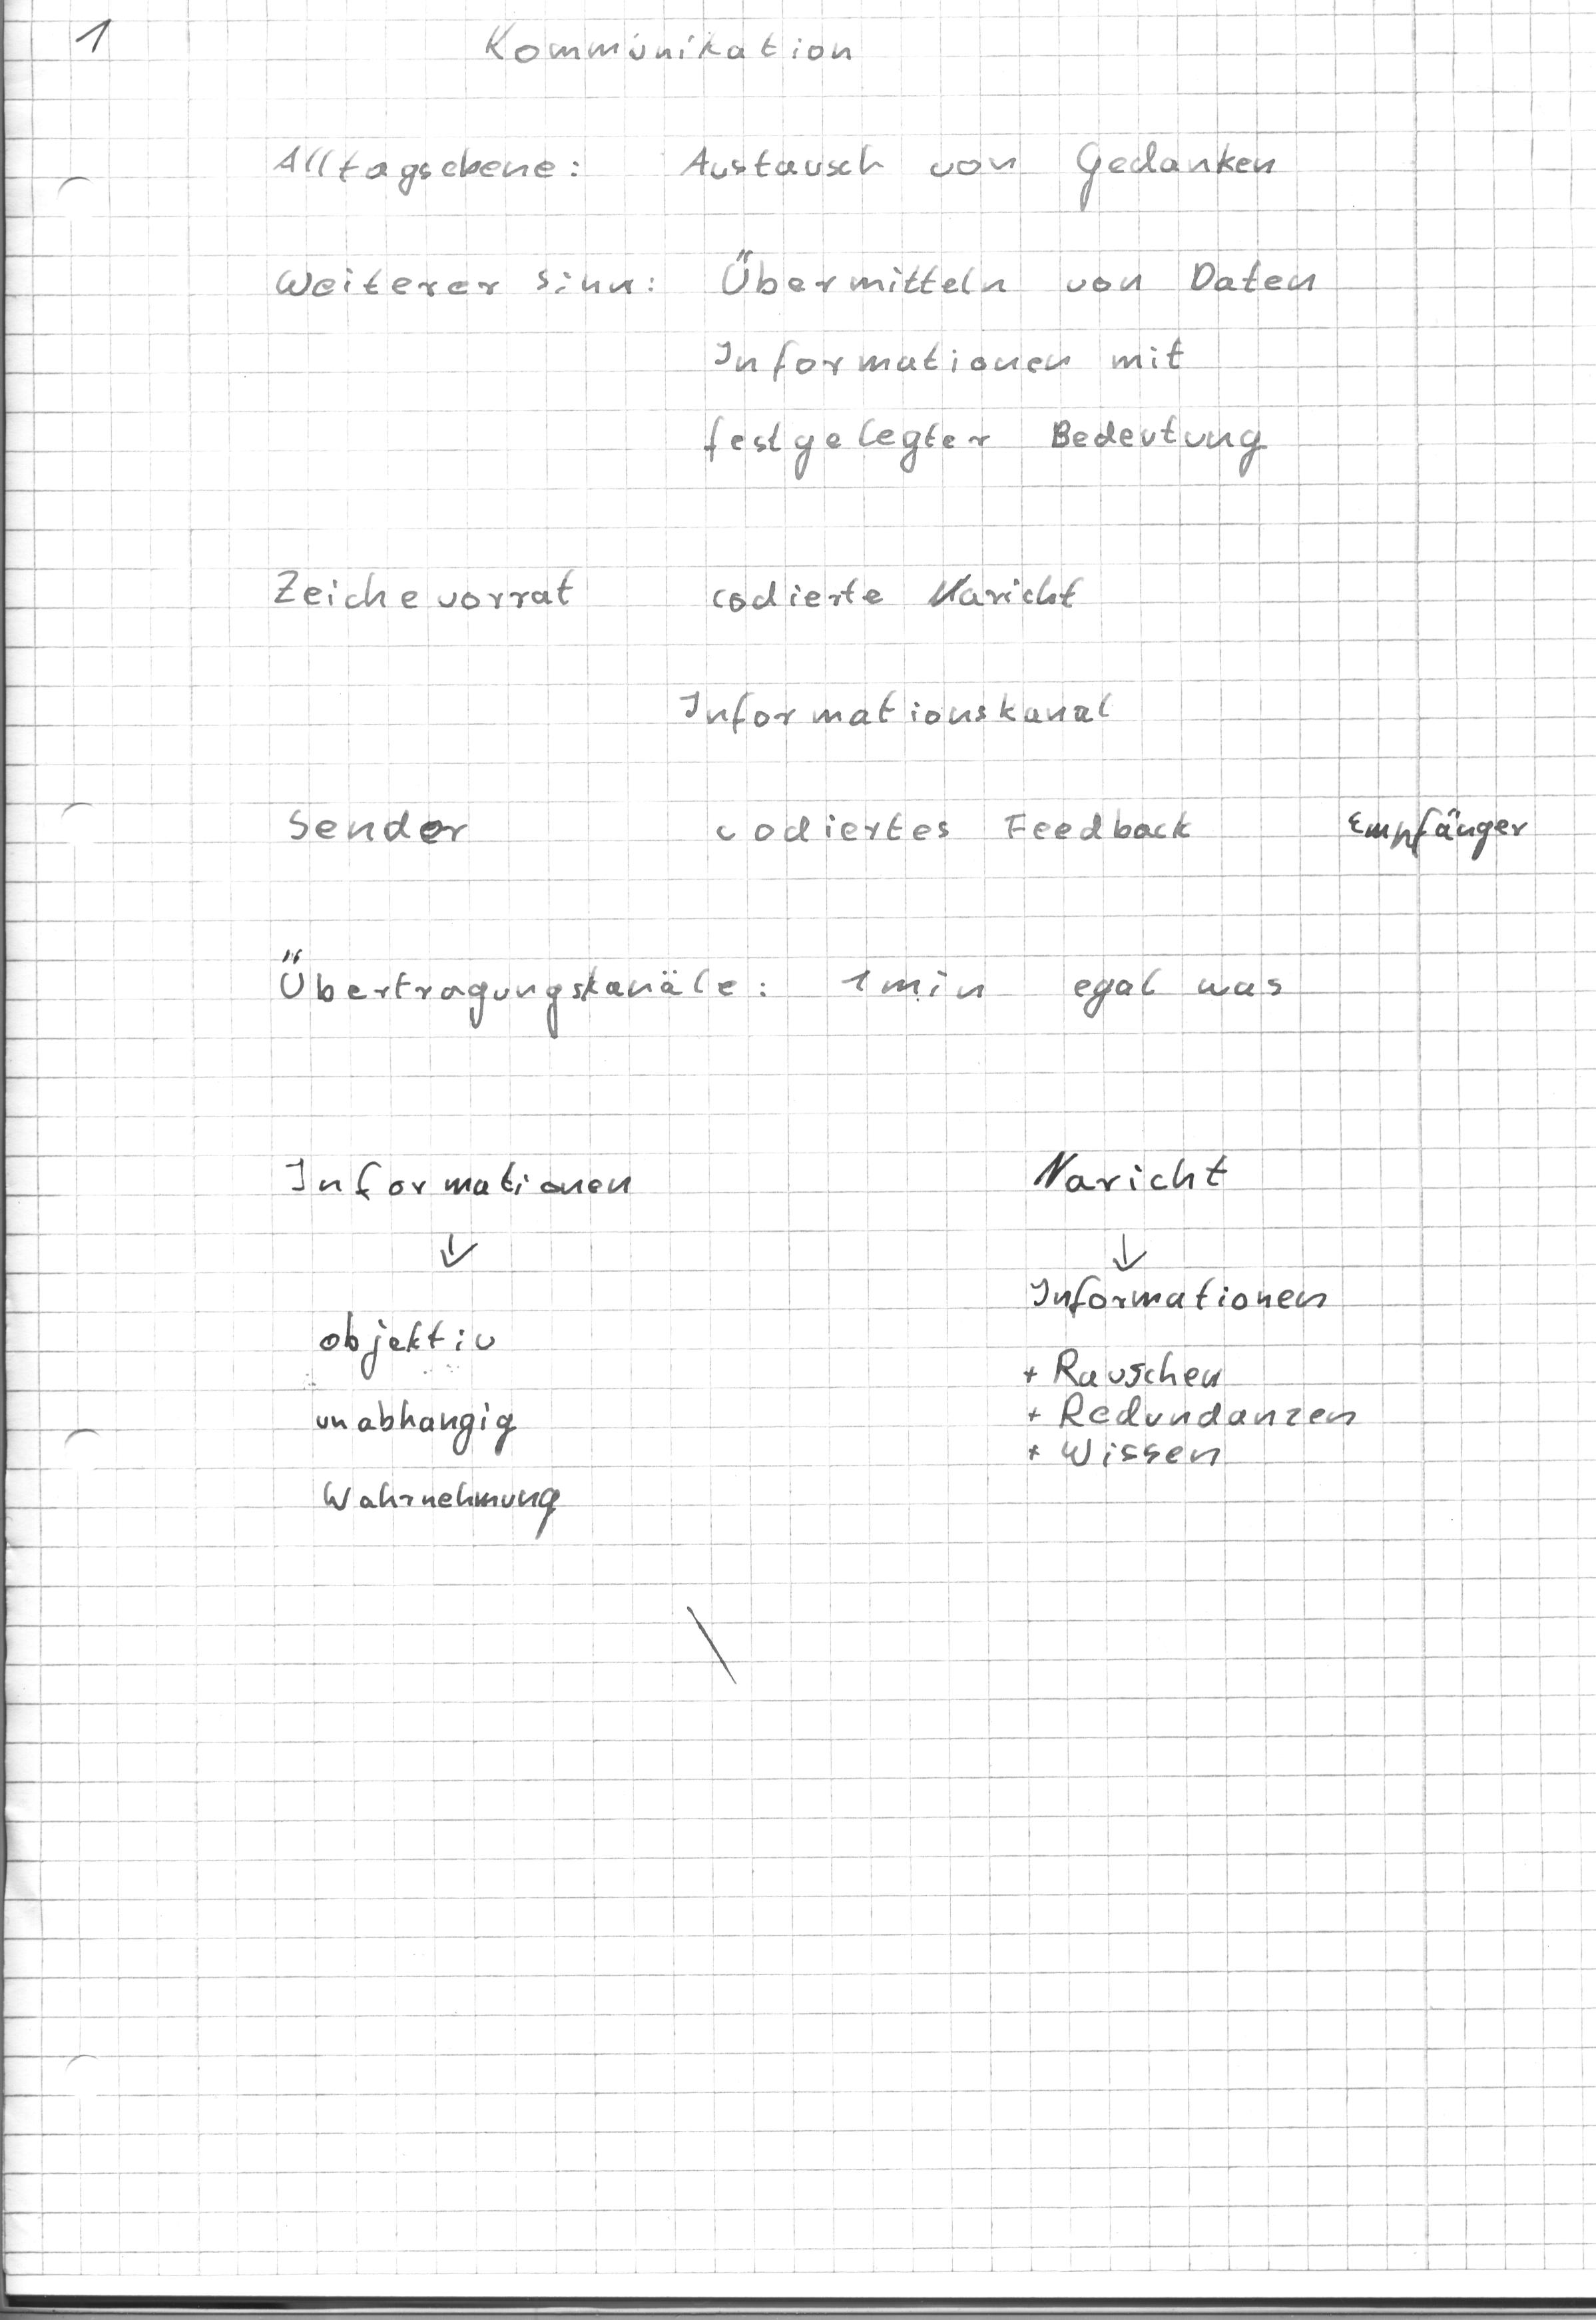 1 Kommunikation
Alltagsebene: Austausch von Gedanken
Weiterer Sinn: Übermitteln von Daten
Informationen mit
festgelegter Bedeutung
Zeichevorrat codierte Naricht
Informationskanal
Sender codiertes Feedback Empfänger
Übertragungskanäle: 1 min egal was
Informationen Naricht
↓ ↓
Informationen
objektiv
+ Rauschen
unabhangig + Redundanzen
+ Wissen
Wahrnehmung